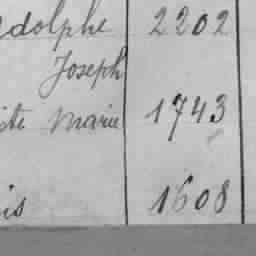 dolphe 2202
Joseph
ite Marie 1743
is 1608